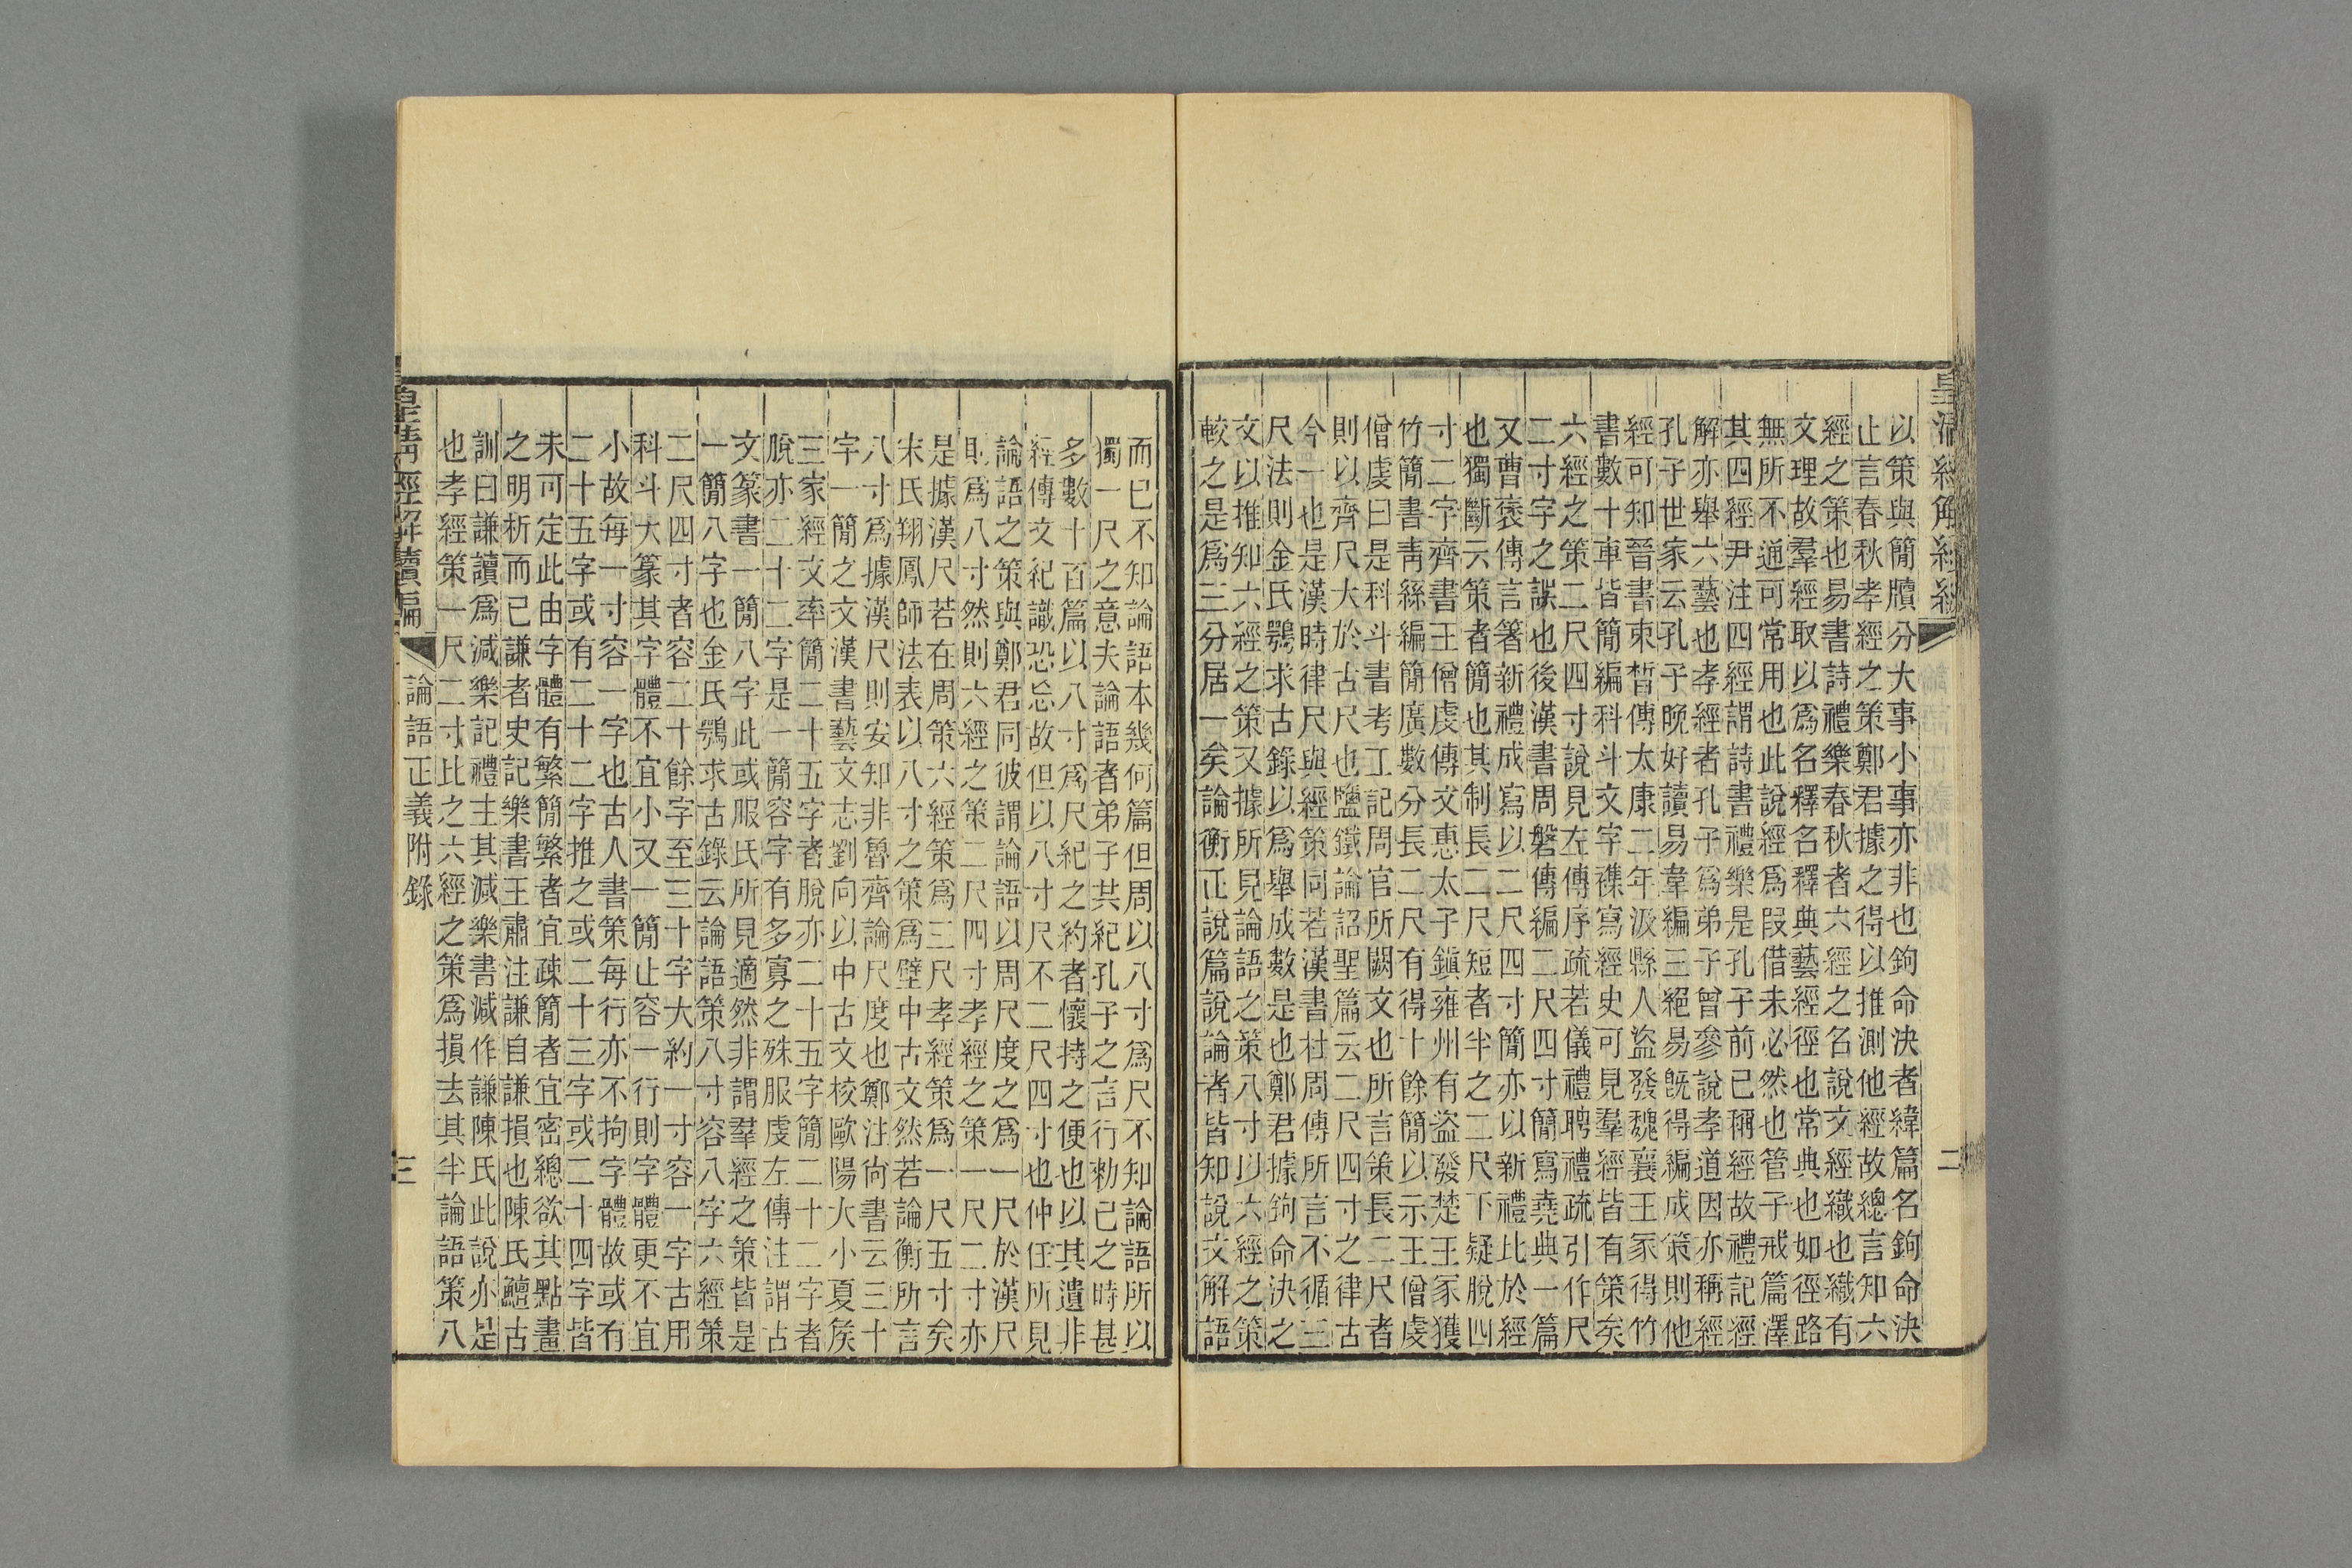 皇清經解
二
以策與簡牘分大事小事亦非也鉤命決者緯篇名鉤命決
止言春秋孝經之策鄭君據之得以推測他經故總言知六
經之策也易書詩禮樂春秋者六經之名說文經織也織有
文理故羣經取以爲名釋名釋典藝經徑也常典也如徑路
無所不通可常用也此說經爲叚借未必然也管子戒篇澤
其四經尹注四經謂詩書禮樂是孔子前已稱經故禮記經
解亦舉六藝也孝經者孔子爲弟子曾參說孝道因亦稱經
孔子世家云孔子晚好讀易韋編三絕易旣得編成策則他
經可知晉書束皙傳太康二年汲縣人盜發魏襄王冢得竹
書數十車皆簡編科斗文字襍寫經史可見羣經皆有策矣
六經之策二尺四寸說見左傳序疏若儀禮聘禮疏引作尺
二寸字之誤也後漢書周磐傳編二尺四寸簡寫堯典一篇
又曹褒傳言箸新禮成寫以二尺四寸簡亦以新禮比於經
也獨斷云策者簡也其制長二尺短者半之二尺下疑脫四
寸二字齊書王僧虔傳文惠太子鎭雍州有盜發楚王冢獲
竹簡書靑絲編簡廣數分長二尺有得十餘簡以示王僧虔
僧虔曰是科斗書考工記周官所闕文也所言策長二尺者
則以齊尺大於古尺也鹽鐵論詔聖篇云二尺四寸之律古
今一也是漢時律尺與經策同若漢書杜周傳所言不循三
尺法則金氏鶚求古錄以爲舉成數是也鄭君據鉤命決之
文以推知六經之策又據所見論語之策八寸以六經之策
較之是爲三分居一矣論衡正說篇說論者皆知說文解語
而已不知論語本幾何篇但周以八寸爲尺不知論語所以
獨一尺之意夫論語者弟子其紀孔子之言行勑己之時甚
多數十百篇以八寸爲尺紀之約者懷持之便也以其遺非
經傳文紀識恐忘故但以八寸尺不二尺四寸也仲任所見
論語之策與鄭君同彼謂論語以周尺度之爲一尺於漢尺
則爲八寸然則六經之策二尺四寸孝經之策一尺二寸亦
是據漢尺若在周策六經策爲三尺孝經策爲一尺五寸矣
宋氏翔鳳師法表以八寸之策爲壁中古文然若論衡所言
八寸爲據漢尺則安知非魯齊論尺度也鄭注尙書云三十
字一簡之文漢書藝文志劉向以中古文校歐陽大小夏矦
三家經文率簡二十五字者脫亦二十五字簡二十二字者
脫亦二十二字是一簡容字有多寡之殊服虔左傳注謂古
文篆書一簡八字此或服氏所見適然非謂羣經之策皆是
一簡八字也金氏鶚求古錄云論語策八寸容八字六經策
二尺四寸者容二十餘字至三十字大約一寸容一字古用
科斗大篆其字體不宜小又一簡止容一行則字體更不宜
小故每一寸容一字也古人書策每行亦不拘字體故或有
二十五字或有二十二字推之或二十三字或二十四字皆
未可定此由字體有繁簡繁者宜疎簡者宜密總欲其點畫
之明析而已謙者史記樂書王肅注謙自謙損也陳氏鱣古
訓曰謙讀爲減樂記禮主其減樂書減作謙陳氏此說亦是
也孝經策一尺二寸比之六經之策爲損去其半論語策八
皇清經解續編
論語正義附錄
三